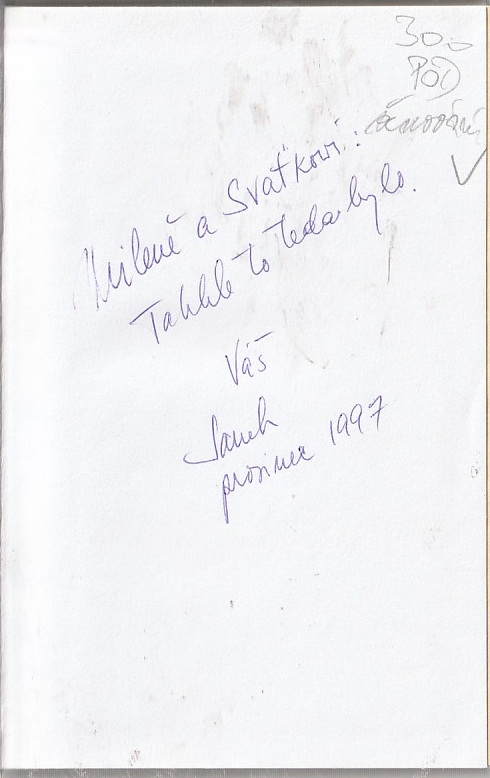 300
PŮD
Mileně a Svaťkovi:
Takhle to teda bylo.
Váš
prosinec 1997